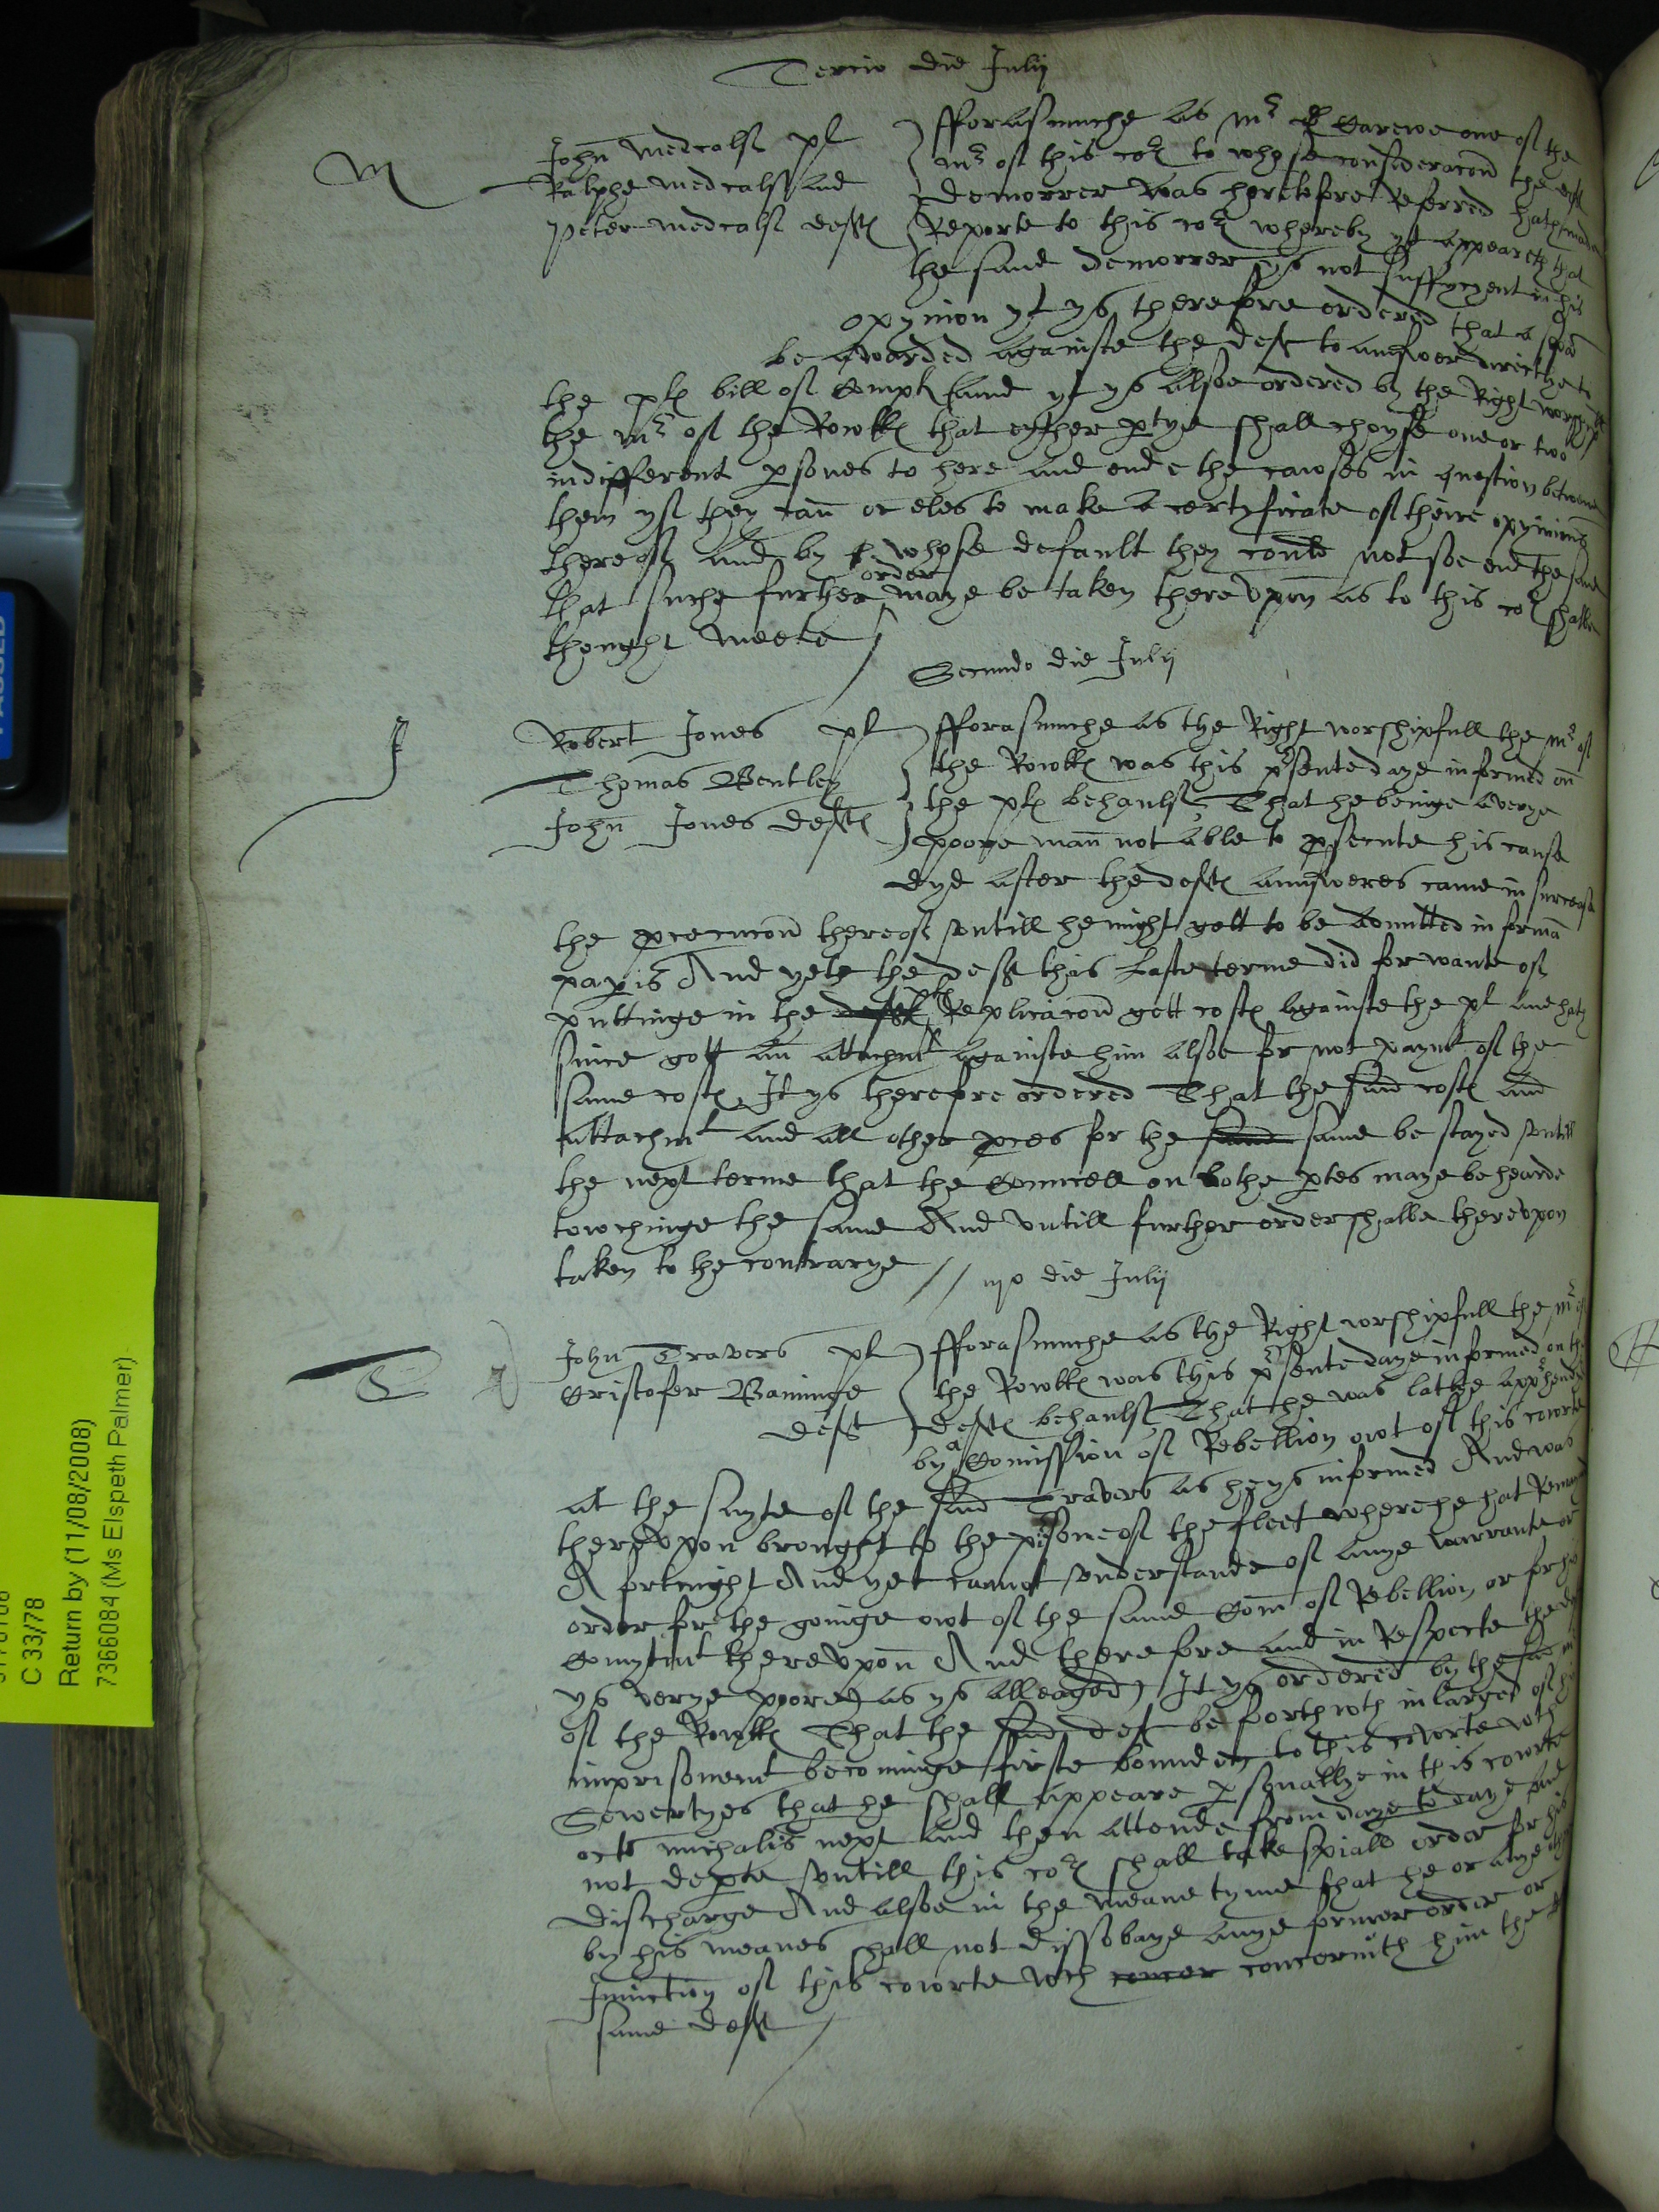 Tercio die Julij
M
John Medcalf pl
Ralphe Medcalf and
Peter Medcalf deftes
fforasmuche as mr Carewe one of the
mr of this cort to whose consideracon the deftes
demorrer was heretofore referred hath made
Reporte to this cort whereby yt appeareth that
the same demorrer ys not suffycyent in his
opynion yt ys therefore ordered that a spa
be awarded againste the deft to answer directlye to
the ples bill of Complt (and yt ys alsoe ordered by the Right worshipfull
the mr of the Rowlles that eyther ptye shall choyse one or two
indifferent psones to here and ende the cawses in question betwene
them yf they can or eles to make a certyficate of theire opynions
thereof and by whose default they coulde not soe end the same
that suche further order maye be taken therevpon as to this cort shalbe
thought meete
Secundo die Julij
J
Robert Jones pl
Thomas Bentley
John Jones deftes
fforasmuche as the Right worshipfull the mr of
the Rowlles was this psente daye informed on
the ples behaulf That he beinge a verye
poore man not able to psecute his cause
dyd after the deftes aunsweres came in surcease
the psecucon thereof vntill he might gett to be admitted in forma
papis And yete the deft this laste terme did for wante of
puttinge in the deftes ples Replicacon gett costes againste the pl and hath
since gott an attachmt againste him alsoe for not paymt of the
same costes It ys therefore ordered That the said costes and
attachmt and all other pces for the said same be stayed vntill
the next terme that the Councell on bothe ptes maye be hearde
towchinge the same And vntill further order shalbe therevpon
taken to the contrarye // iijo die Julij
T
John Travers pl
Cristofer Baninge
deft
fforasmuche as the Right worshipfull the mr of
the Rowlles was this psente daye informed on the
deftes behaulf That he was latlye apphended
by a Comission of Rebellion owt of this cowrte
at the suyte of the said Travers as he ys informed And was
therevpon brought to the prisone of the fleet where he hat Remayned
A fortnyght And yet cannot vnderstande of anye warrante or
order for the goinge owt of the same Com of Rebellion or for his
Comytmt therevpon And therefore and in Respecte the deft
ys verye poore (as ys alleaged) It ys ordered by the said mr
of the Rowlles That the said deft be forthwth inlarged of his
imprisonemt becominge firste bounden to this cowrte wth
Sewertyes that he shall appeare psonallye in this cowrte
octs michalis next and then attende from daye to daye and
not depte vntill this cort shall take spiall order for his
discharge And alsoe in the meane tyme that he or anye other
by his meanes shall not dissobaye anye former order or
Iniunction of this cowrte wch concer concernith him the
same deft
PASSED
C 33/78
Return by (11/08/2008)
7366084 (Ms Elspeth Palmer)